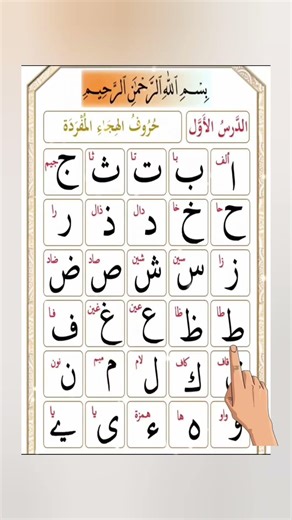 بِسْمِ اللهِ الرَّحْمٰنِ الرَّحِيْمِ
الدَّرسُ الأَوَّل حُرُوفُ الهِجَاءِ المُفْرَدَة
ألف ا با ب تا ت ثا ث جيم ج
حا ح خا خ دال د ذال ذ را ر
زا ز سين س شين ش صاد ص ضاد ض
طا ط ظا ظ عين ع غين غ فا ف
قاف كاف ك لام ل ميم م نون ن
واو و ها ه همزة ء يا ى يا ے